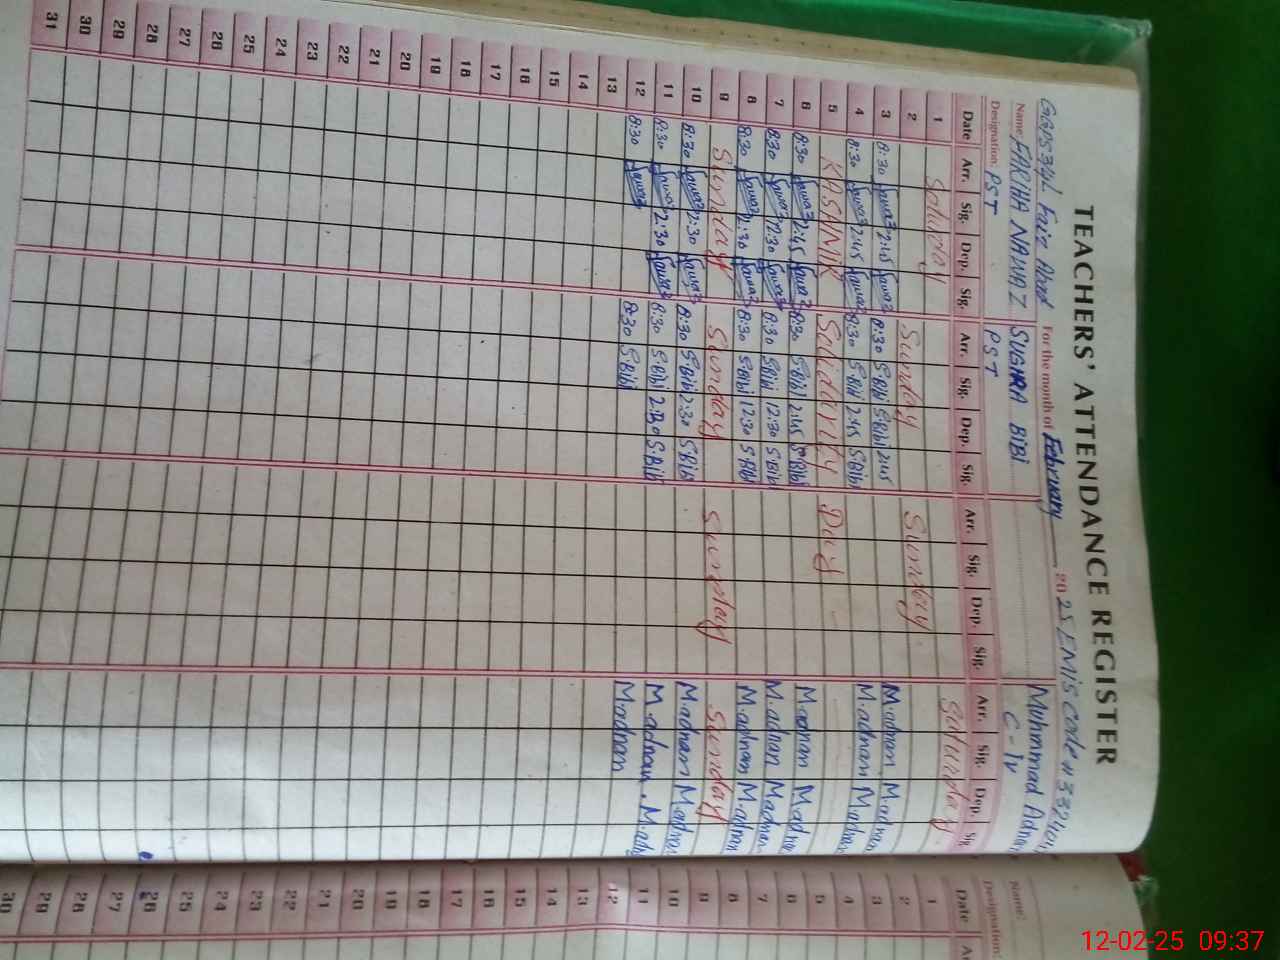 TEACHERS' ATTENDANCE REGISTER
For the month of February 2025 EMIS Code # 
Name FARIHA NAWAZ SUGHRA BiBi Muhmmad Adnan
Designation. PST PST C-IV
Date Arr. Sig. Dep. Sig. Arr. Sig. Dep. Sig. Arr. Sig. Dep. Sig. Arr. Sig. Dep. Sig.
1 Saturday
2 Sunday Sunday
3 8:30 Nawaz 2:45 Nawaz 8:30 S.Bibi S.Bibi 2:45 M.adnan M.adnan
4 8:30 Nawaz 2:45 Nawaz 8:30 S.Bibi 2:45 S.Bibi M.adnan M.adnan
5 KASHMIR Solidarity Day
6 8:30 Nawaz 2:45 Nawaz 8:30 S.Bibi 2:45 S.Bibi M.adnan M.adnan
7 8:30 Nawaz 12:30 Nawaz 8:30 S.Bibi 12:30 S.Bibi M.adnan M.adnan
8 8:30 Nawaz 2:30 Nawaz 8:30 S.Bibi 12:30 S.Bibi M.adnam M.adnan
9 Sunday Sunday Sunday Sunday
10 8:30 Nawaz 2:30 Nawaz 8:30 S.Bibi 2:30 S.Bibi M.adnam M.adnan
11 8:30 Nawaz 2:30 Nawaz 8:30 S.Bibi 2:30 S.Bibi M.adnan M.adn
12 8:30 Nawaz 8:30 S.Bibi M.adnam
13
14
15
16
17
18
19
20
21
22
23
24
25
26
27
28
29
30
31
Name:
Designation:
Date
1
2
3
4
5
6
7
8
9
10
11
12
13
14
15
16
17
18
19
20
21
22
23
24
25
26
27
28
29
30
12-02-25 09:37